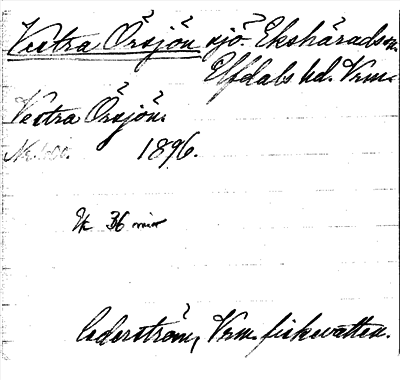 Vestra Örsjön sjö. Ekshärads sn.
Elfdals hd. Vrm.
Vestra Örsjön.
1896.
36
Cederström, Vrm. fiskevatten.